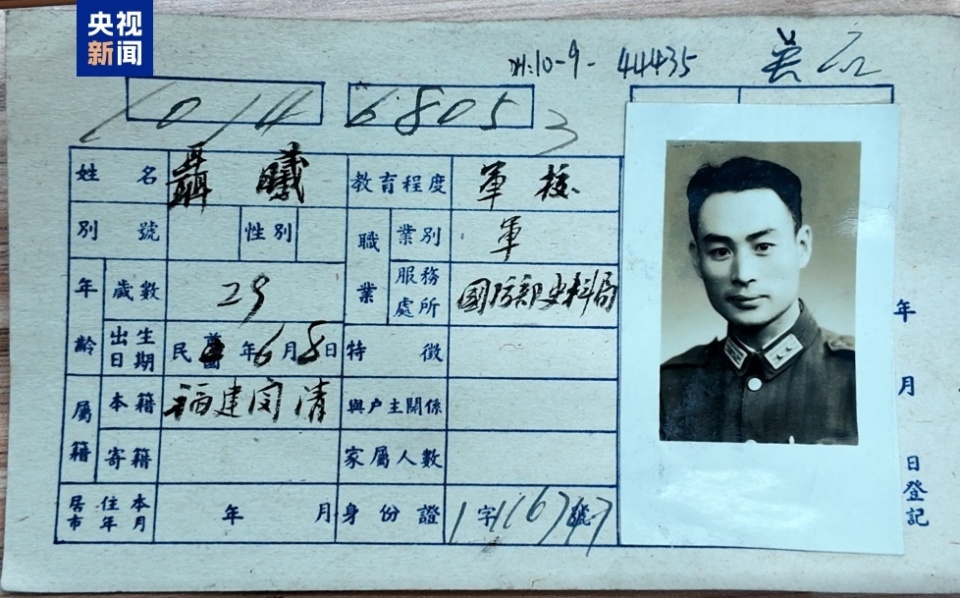 央视
新闻
44435
1014
6805
3
姓名 聶曦
教育程度 軍校
別號
性別
職業 業別 軍
年齡 歲數 29
服務處所 國防部史料局
出生日期 民 年6月8日
特徵
屬籍 本籍 福建闽清
與户主關係
寄籍
家屬人數
居住本市年月 年 月
身份證 字 號
年
月
日登記